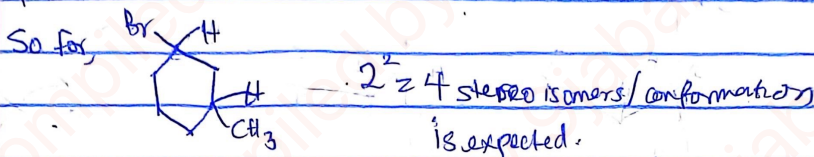 So for,
Br H
H
CH3
2² = 4 stereo isomers/conformation
is expected.